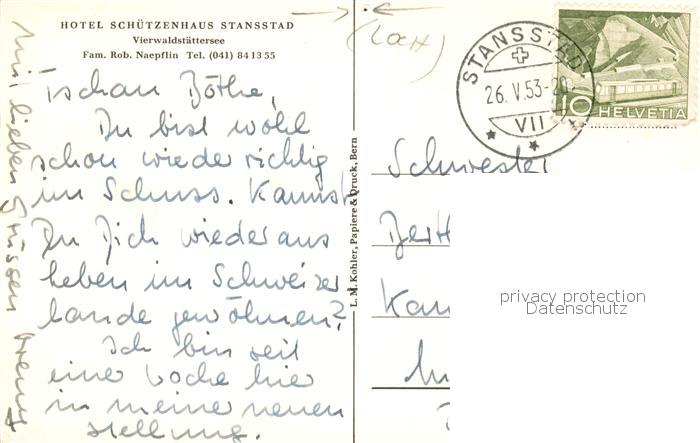 HOTEL SCHÜTZENHAUS STANSSTAD
Vierwaldstättersee
Fam. Rob. Naepflin Tel. (041) 84 13 55
Tschau Böthe,
Du bist wohl
schon wieder richtig
im Schuss. Kannst
Du Dich wieder ans
Leben im Schweizer
lande gewöhnen?
Ich bin seit
einer Woche hier
in meiner neuen
Stellung.
Mit lieben Grüssen
L. M. Kohler, Papiere & Druck, Bern
(LOCH)
STANSSTAD
26. V. 53-20
VII
10 HELVETIA
Schwester
privacy protection
Datenschutz